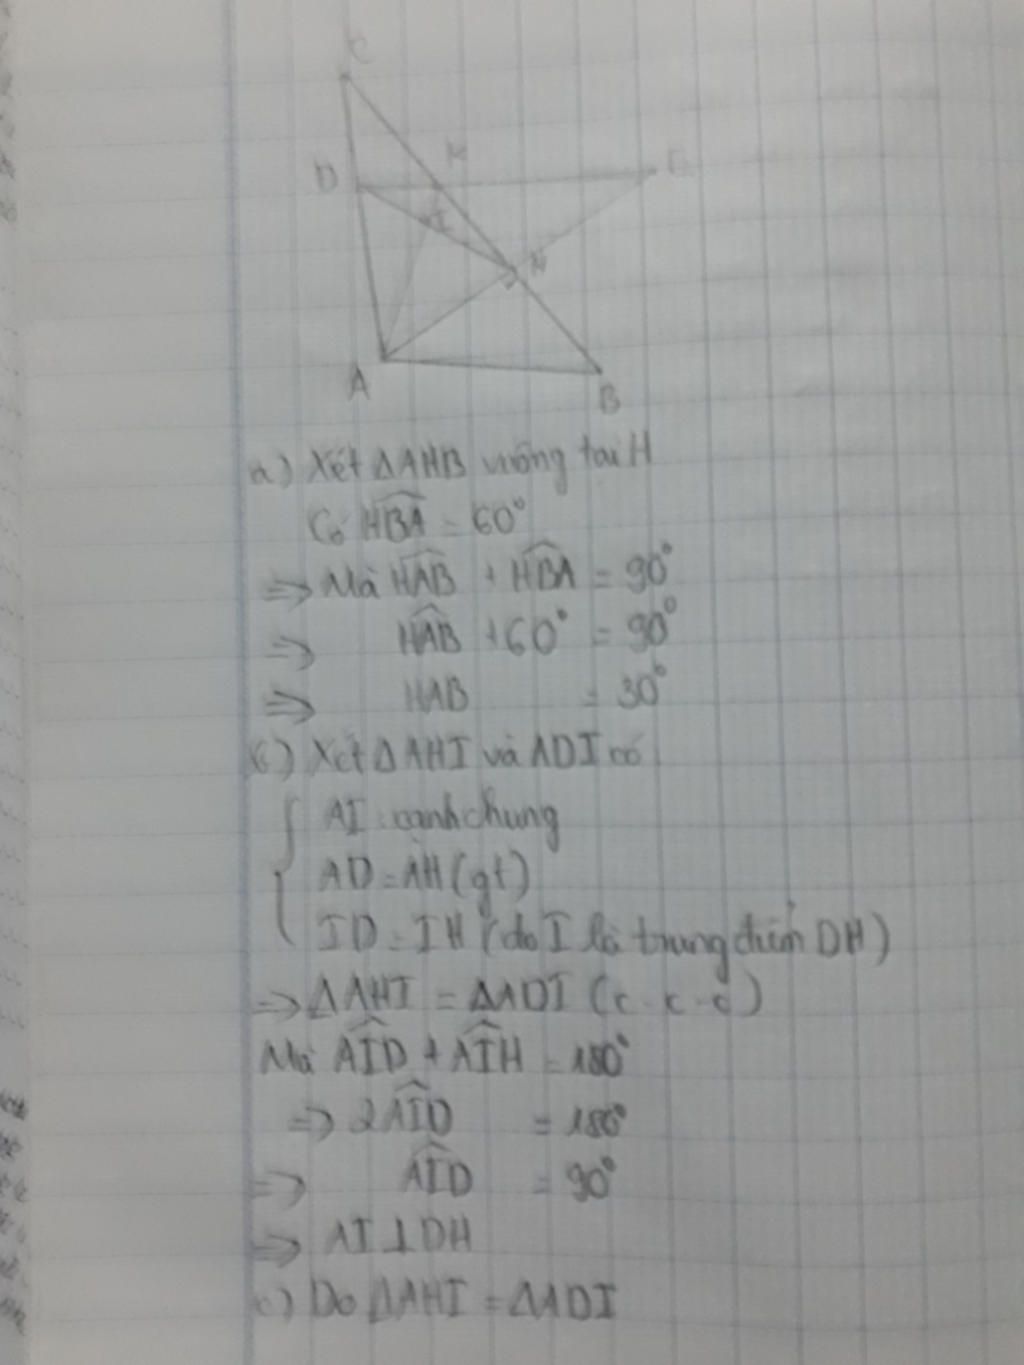 C
D K E
I
H
A
B
a) Xét ΔAHB vuông tại H
Có HBA = 60°
=> Mà HAB + HBA = 90°
=> HAB + 60° = 90°
=> HAB = 30°
b) Xét ΔAHI và ADI có
AI cạnh chung
AD = AH (gt)
ID = IH (do I là trung điểm DH)
=> ΔAHI = ΔADI (c-c-c)
Mà AID + AIH = 180°
=> 2AID = 180°
=> AID = 90°
=> AI ⊥ DH
c) Do ΔAHI = ΔADI